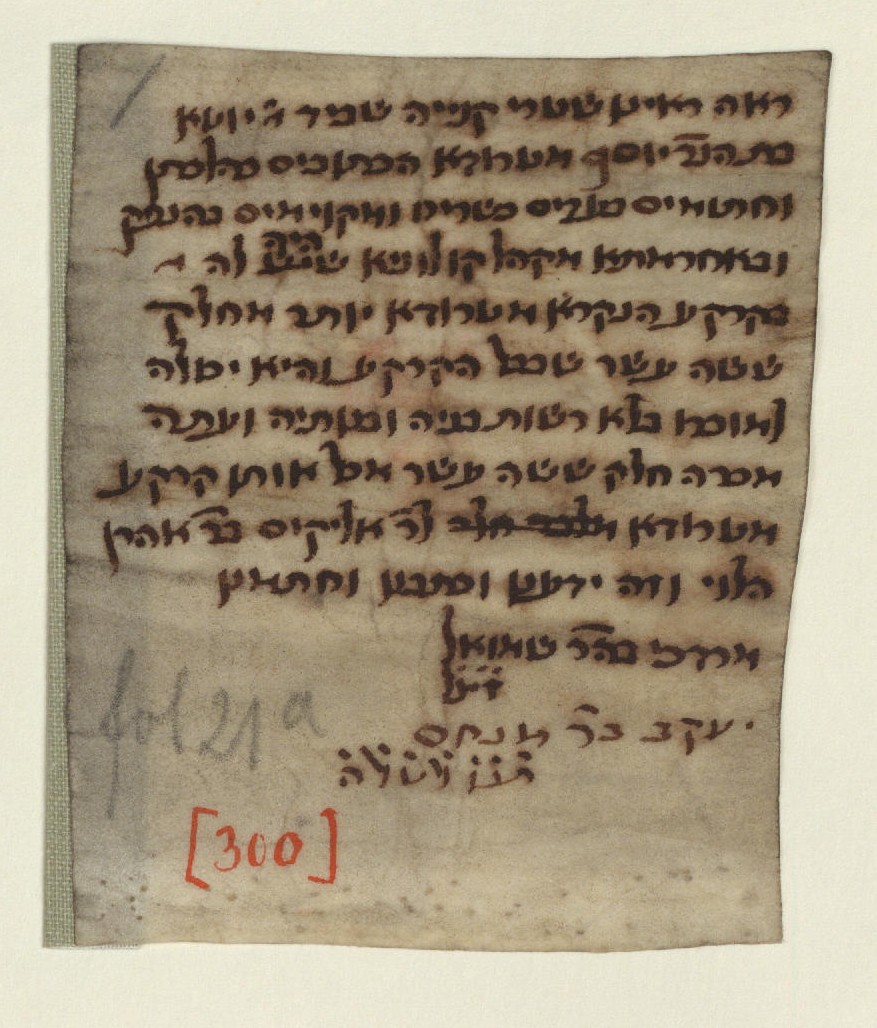 ראה ראינו שטרי קנייה שמר יוטא
בת הנד׳ יוסף מטרודא הכתובים כהלכתן
וחתומים בעדים כשרים ומקויימים כהנפק
ובאחרמתא מקהל קולוניא שהיה לה
בקרקע הנקרא מטרודא יותר מחלק
ששה עשר שבכל הקרקע והיא יכולה
למוכרו בלא רשות בניה ובנותיה ועתה
מכרה חלק ששה עשר מכל אותו קרקע
מטרודא לר׳ אליקים בר׳ אהרן
הלוי וזה ידענו וכתבנו וחתמנו
מרדכי בה״ר שמואל
זצ״ל
יעקב בר׳ מנחם
fol 21a
[300]